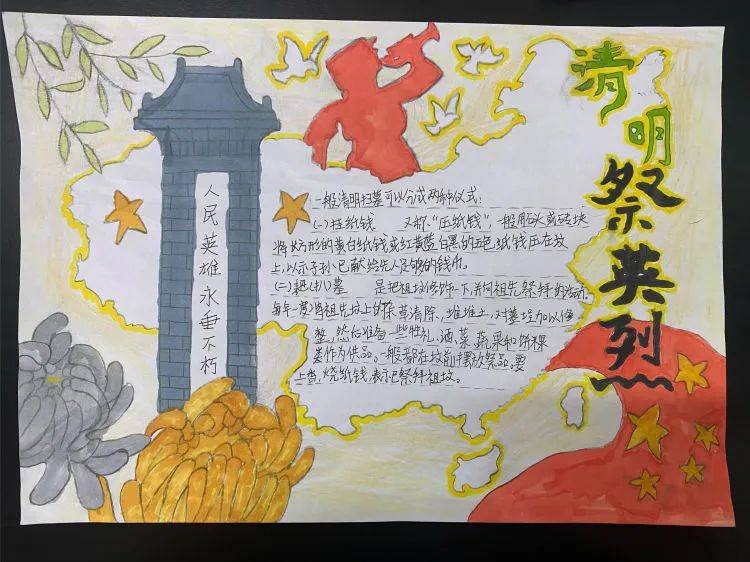 清明
祭英烈
人民英雄永垂不朽
一般清明扫墓可以分成两种仪式:
(一)挂纸钱 又称“压纸钱”,一般用石头或砖块
将长方形的黄白纸钱或红黄蓝白黑的五色纸钱压在坟
上,以示子孙已献给先人足够的钱币。
(二)耙(扫)墓 是把祖坟修饰一下,并向祖先祭拜的活动。
每年一度将祖先坟上的杂草清除,堆堆土,对墓茔加以修
整,然后准备一些牲礼、酒、菜、蔬果和饼粿
类作为供品。一般都在坟前摆放祭品。要
上香,烧纸钱,表示已祭拜祖坟。